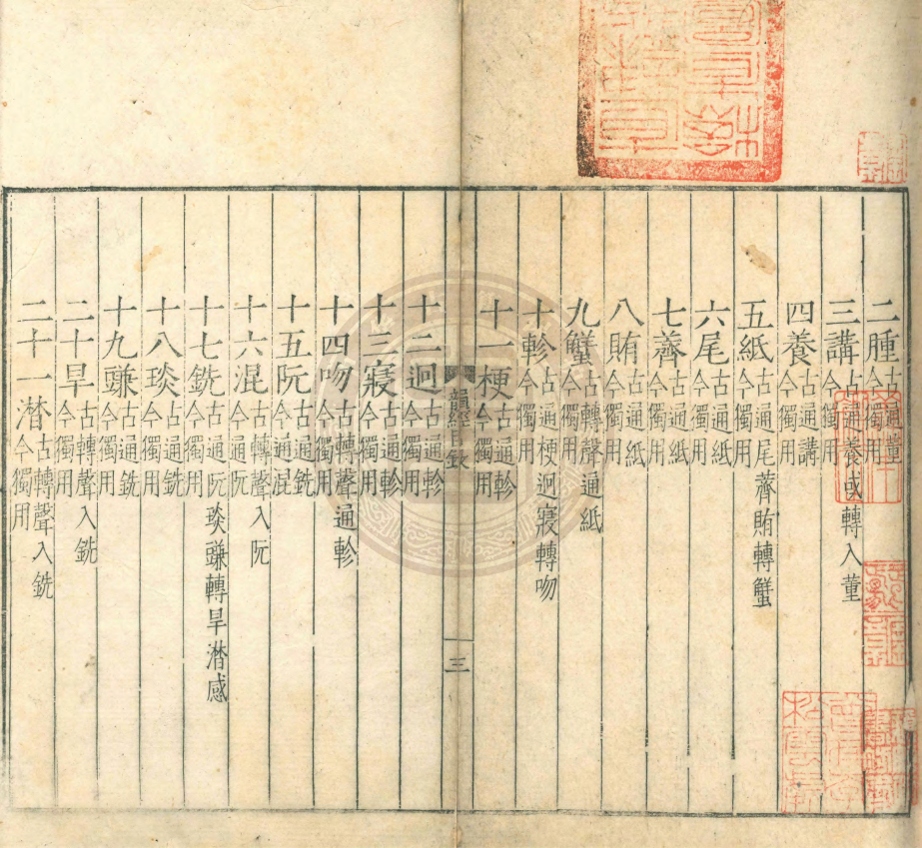 二腫古通董今獨用
三講古通養或轉入董今獨用
四養古通講今獨用
五紙古通尾薺賄轉蟹今獨用
六尾古通紙今獨用
七薺古通紙今獨用
八賄古通紙今獨用
九蟹古轉聲通紙今獨用
十軫古通梗迥寢轉吻今獨用
十一梗古通軫今獨用
韻經目錄
三
十二迥古通軫今獨用
十三寢古通軫今獨用
十四吻古轉聲通軫今獨用
十五阮古通銑今通混
十六混古轉聲入阮今通阮
十七銑古通阮琰豏轉旱潸感今獨用
十八琰古通銑今獨用
十九豏古通銑今獨用
二十旱古轉聲入銑今獨用
二十一潸古轉聲入銑今獨用